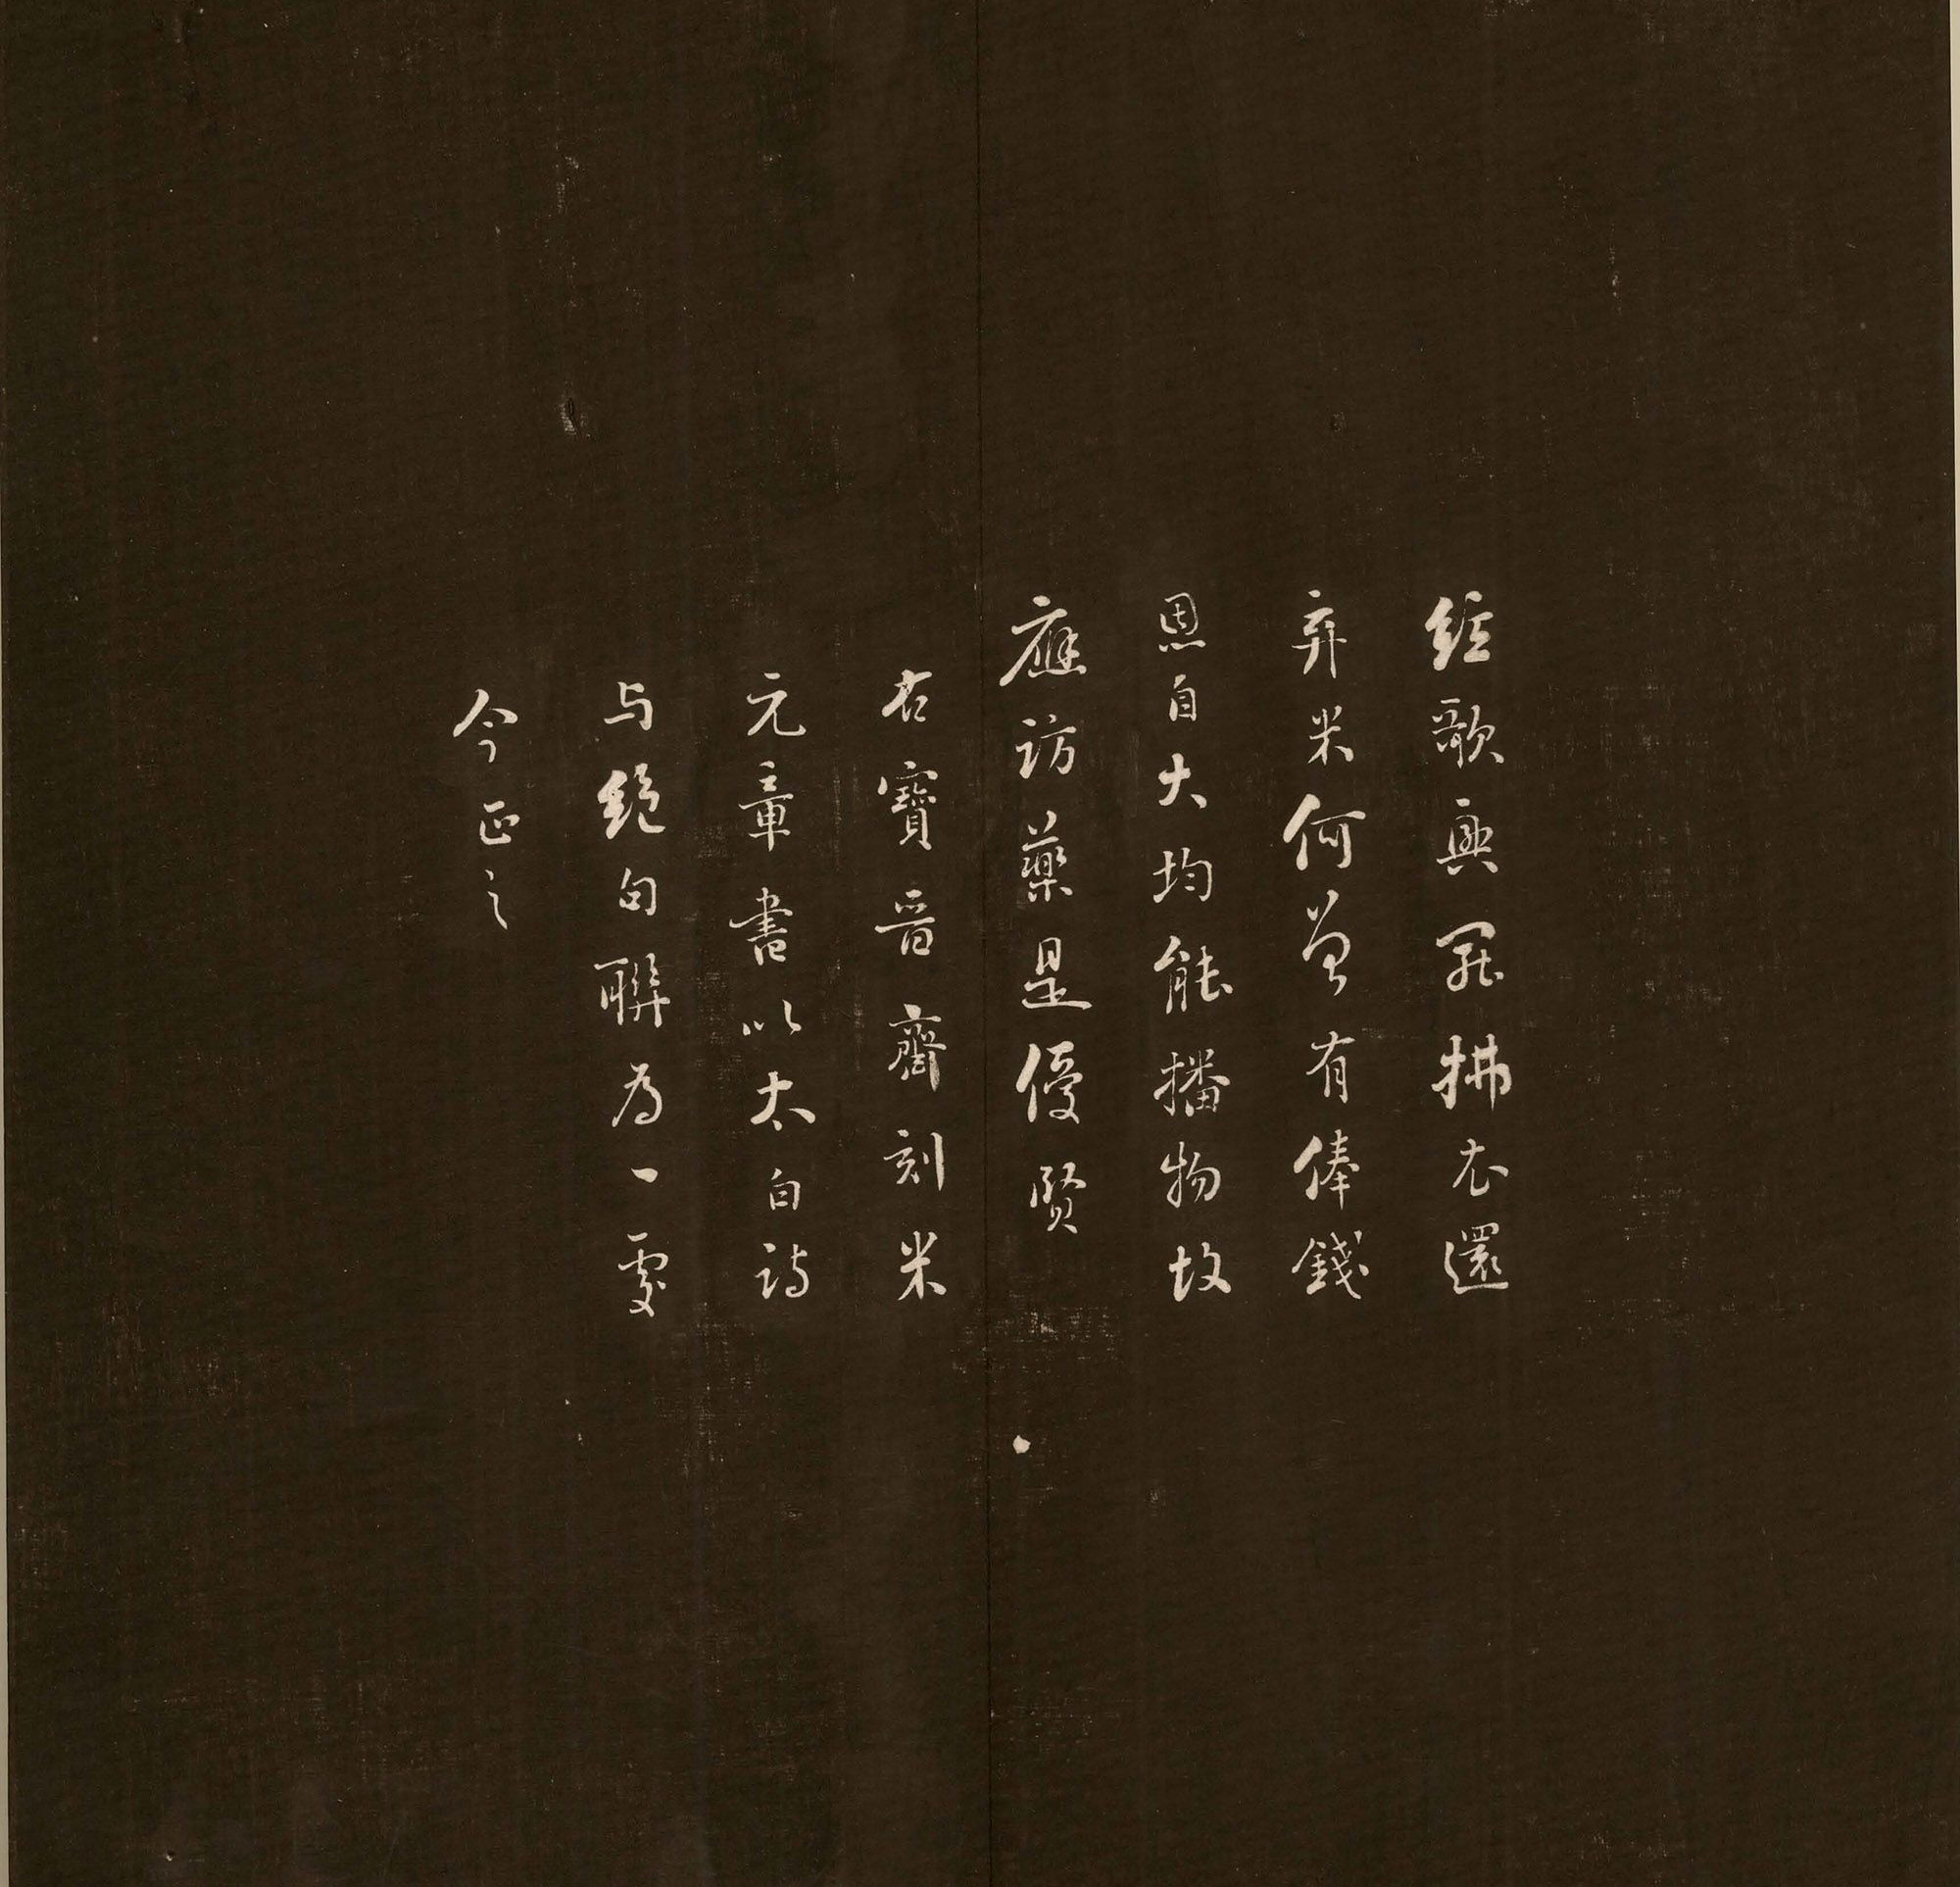 絃歌興罷拂衣還
弃米何曾有俸錢
恩自大均能播物故
應訪藥是優賢
右寶晉齋刻米
元章書以太白詩
与絕句聯為一處
今正之